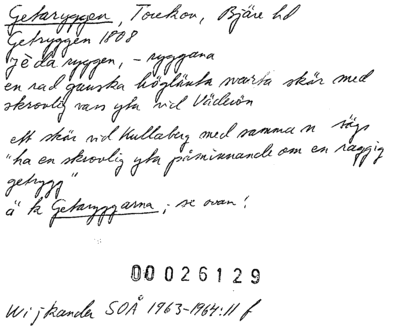 Getaryggen, Torekov, Bjäre hd
Getryggen 1808
jèda ryggen, - ryggana
en rad ganska höglänta svarta skär med
skrovlig vass yta vid Väderön
ett skär vid Kullaberg med samma n sägs
"ha en skrovlig yta påminnande om en raggig
getrygg"
ä k Getaryggarna; se ovan!
00026129
Wijkander SOÅ 1963-1964:11 f